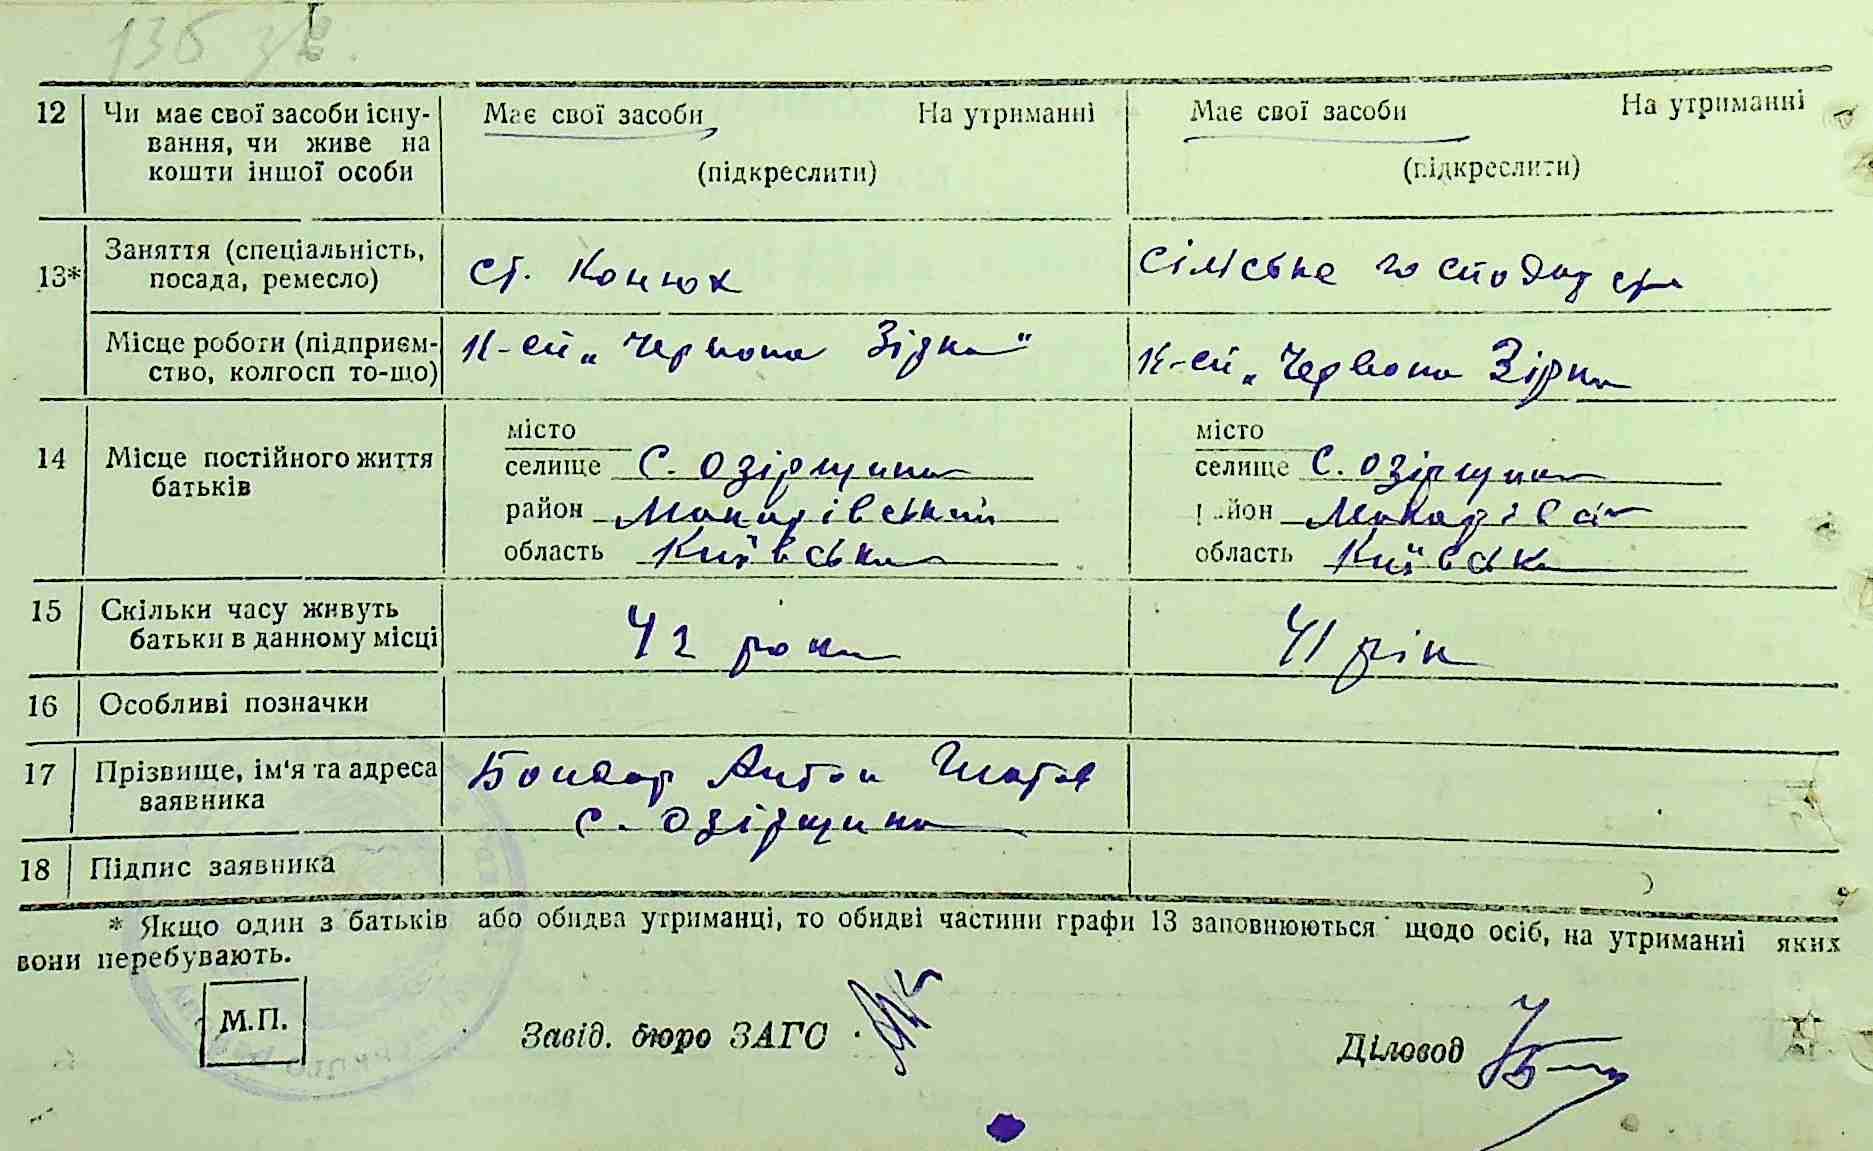 136 зв.
12 Чи має свої засоби існу- Має свої засоби На утриманні Має свої засоби На утриманні
вання, чи живе на
кошти іншої особи (підкреслити) (підкреслити)
13* Заняття (спеціальність, ст. Конюх сільське господар
посада, ремесло)
Місце роботи (підприєм- К-сп „Червона Зірка" К-сп „Червона Зірка
ство, колгосп то-що)
14 Місце постійного життя місто місто
батьків селище С. Озірщина селище С. Озірщина
район Макарівський район Макарівсь
область Київська область Київська
15 Скільки часу живуть 42 роки 41 рік
батьки в данному місці
16 Особливі позначки
17 Прізвище, ім'я та адреса Бондар Антон
заявника с. Озірщина
18 Підпис заявника
* Якщо один з батьків або обидва утриманці, то обидві частини графи 13 заповнюються щодо осіб, на утриманні яких
вони перебувають.
М.П. Завід. бюро ЗАГС Діловод